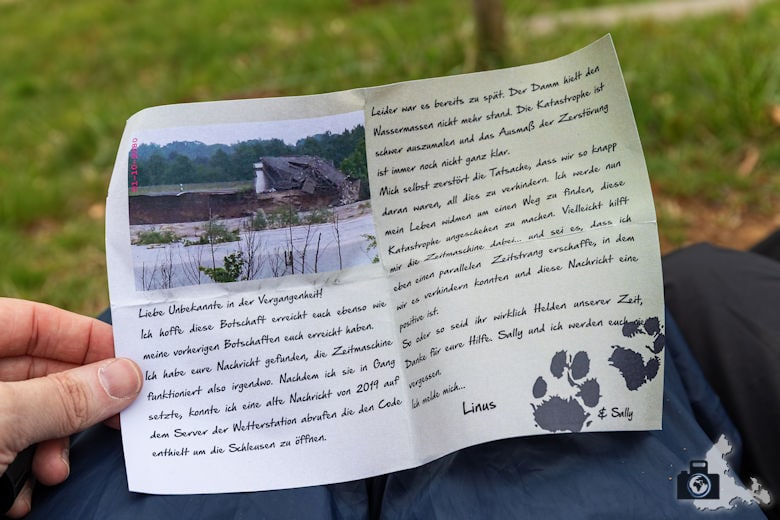 Liebe Unbekannte in der Vergangenheit!
Ich hoffe diese Botschaft erreicht euch ebenso wie
meine vorherigen Botschaften euch erreicht haben.
Ich habe eure Nachricht gefunden, die Zeitmaschine
funktioniert also irgendwo. Nachdem ich sie in Gang
setzte, konnte ich eine alte Nachricht von 2019 auf
dem Server der Wetterstation abrufen die den Code
enthielt um die Schleusen zu öffnen.
Leider war es bereits zu spät. Der Damm hielt den
Wassermassen nicht mehr stand. Die Katastrophe ist
schwer auszumalen und das Ausmaß der Zerstörung
ist immer noch nicht ganz klar.
Mich selbst zerstört die Tatsache, dass wir so knapp
daran waren, all dies zu verhindern. Ich werde nun
mein Leben widmen um einen Weg zu finden, diese
Katastrophe ungeschehen zu machen. Vielleicht hilft
mir die Zeitmaschine dabei... und sei es, dass ich
eben einen parallelen Zeitstrang erschaffe, in dem
wir es verhindern konnten und diese Nachricht eine
positive ist.
So oder so seid ihr wirklich Helden unserer Zeit,
Danke für eure Hilfe. Sally und ich werden euch
vergessen.
Ich melde mich...
Linus
& Sally